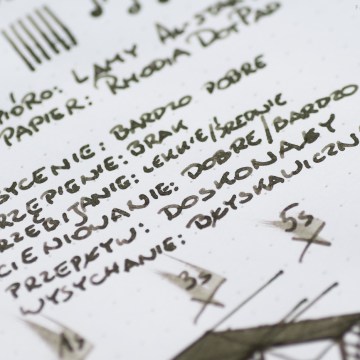 PIÓRO: LAMY AL-STAR
PAPIER: RHODIA DOTPAD
SYCENIE: BARDZO DOBRE
RZEPIENIE: BRAK
RZEBIJANIE: LEKKIE/ŚREDNIE
CIENIOWANIE: DOBRE/BARDZO
PRZEPŁYW: DOSKONAŁY
WYSYCHANIE: BŁYSKAWICZN
1s 3s 5s